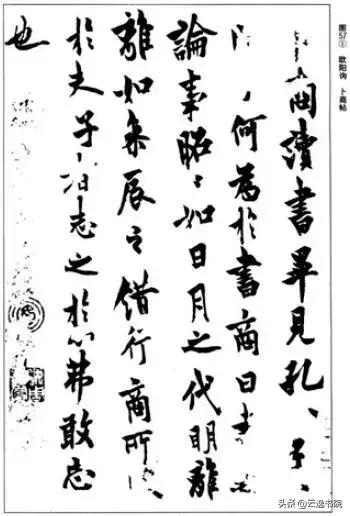 图57① 欧阳询 卜商帖
商讀書畢見孔〻子〻
何為於書商曰書
論事昭〻如日月之代明離
離如參辰之錯行商所
於夫子者志之於心弗敢忘
也
头条@云逸书院